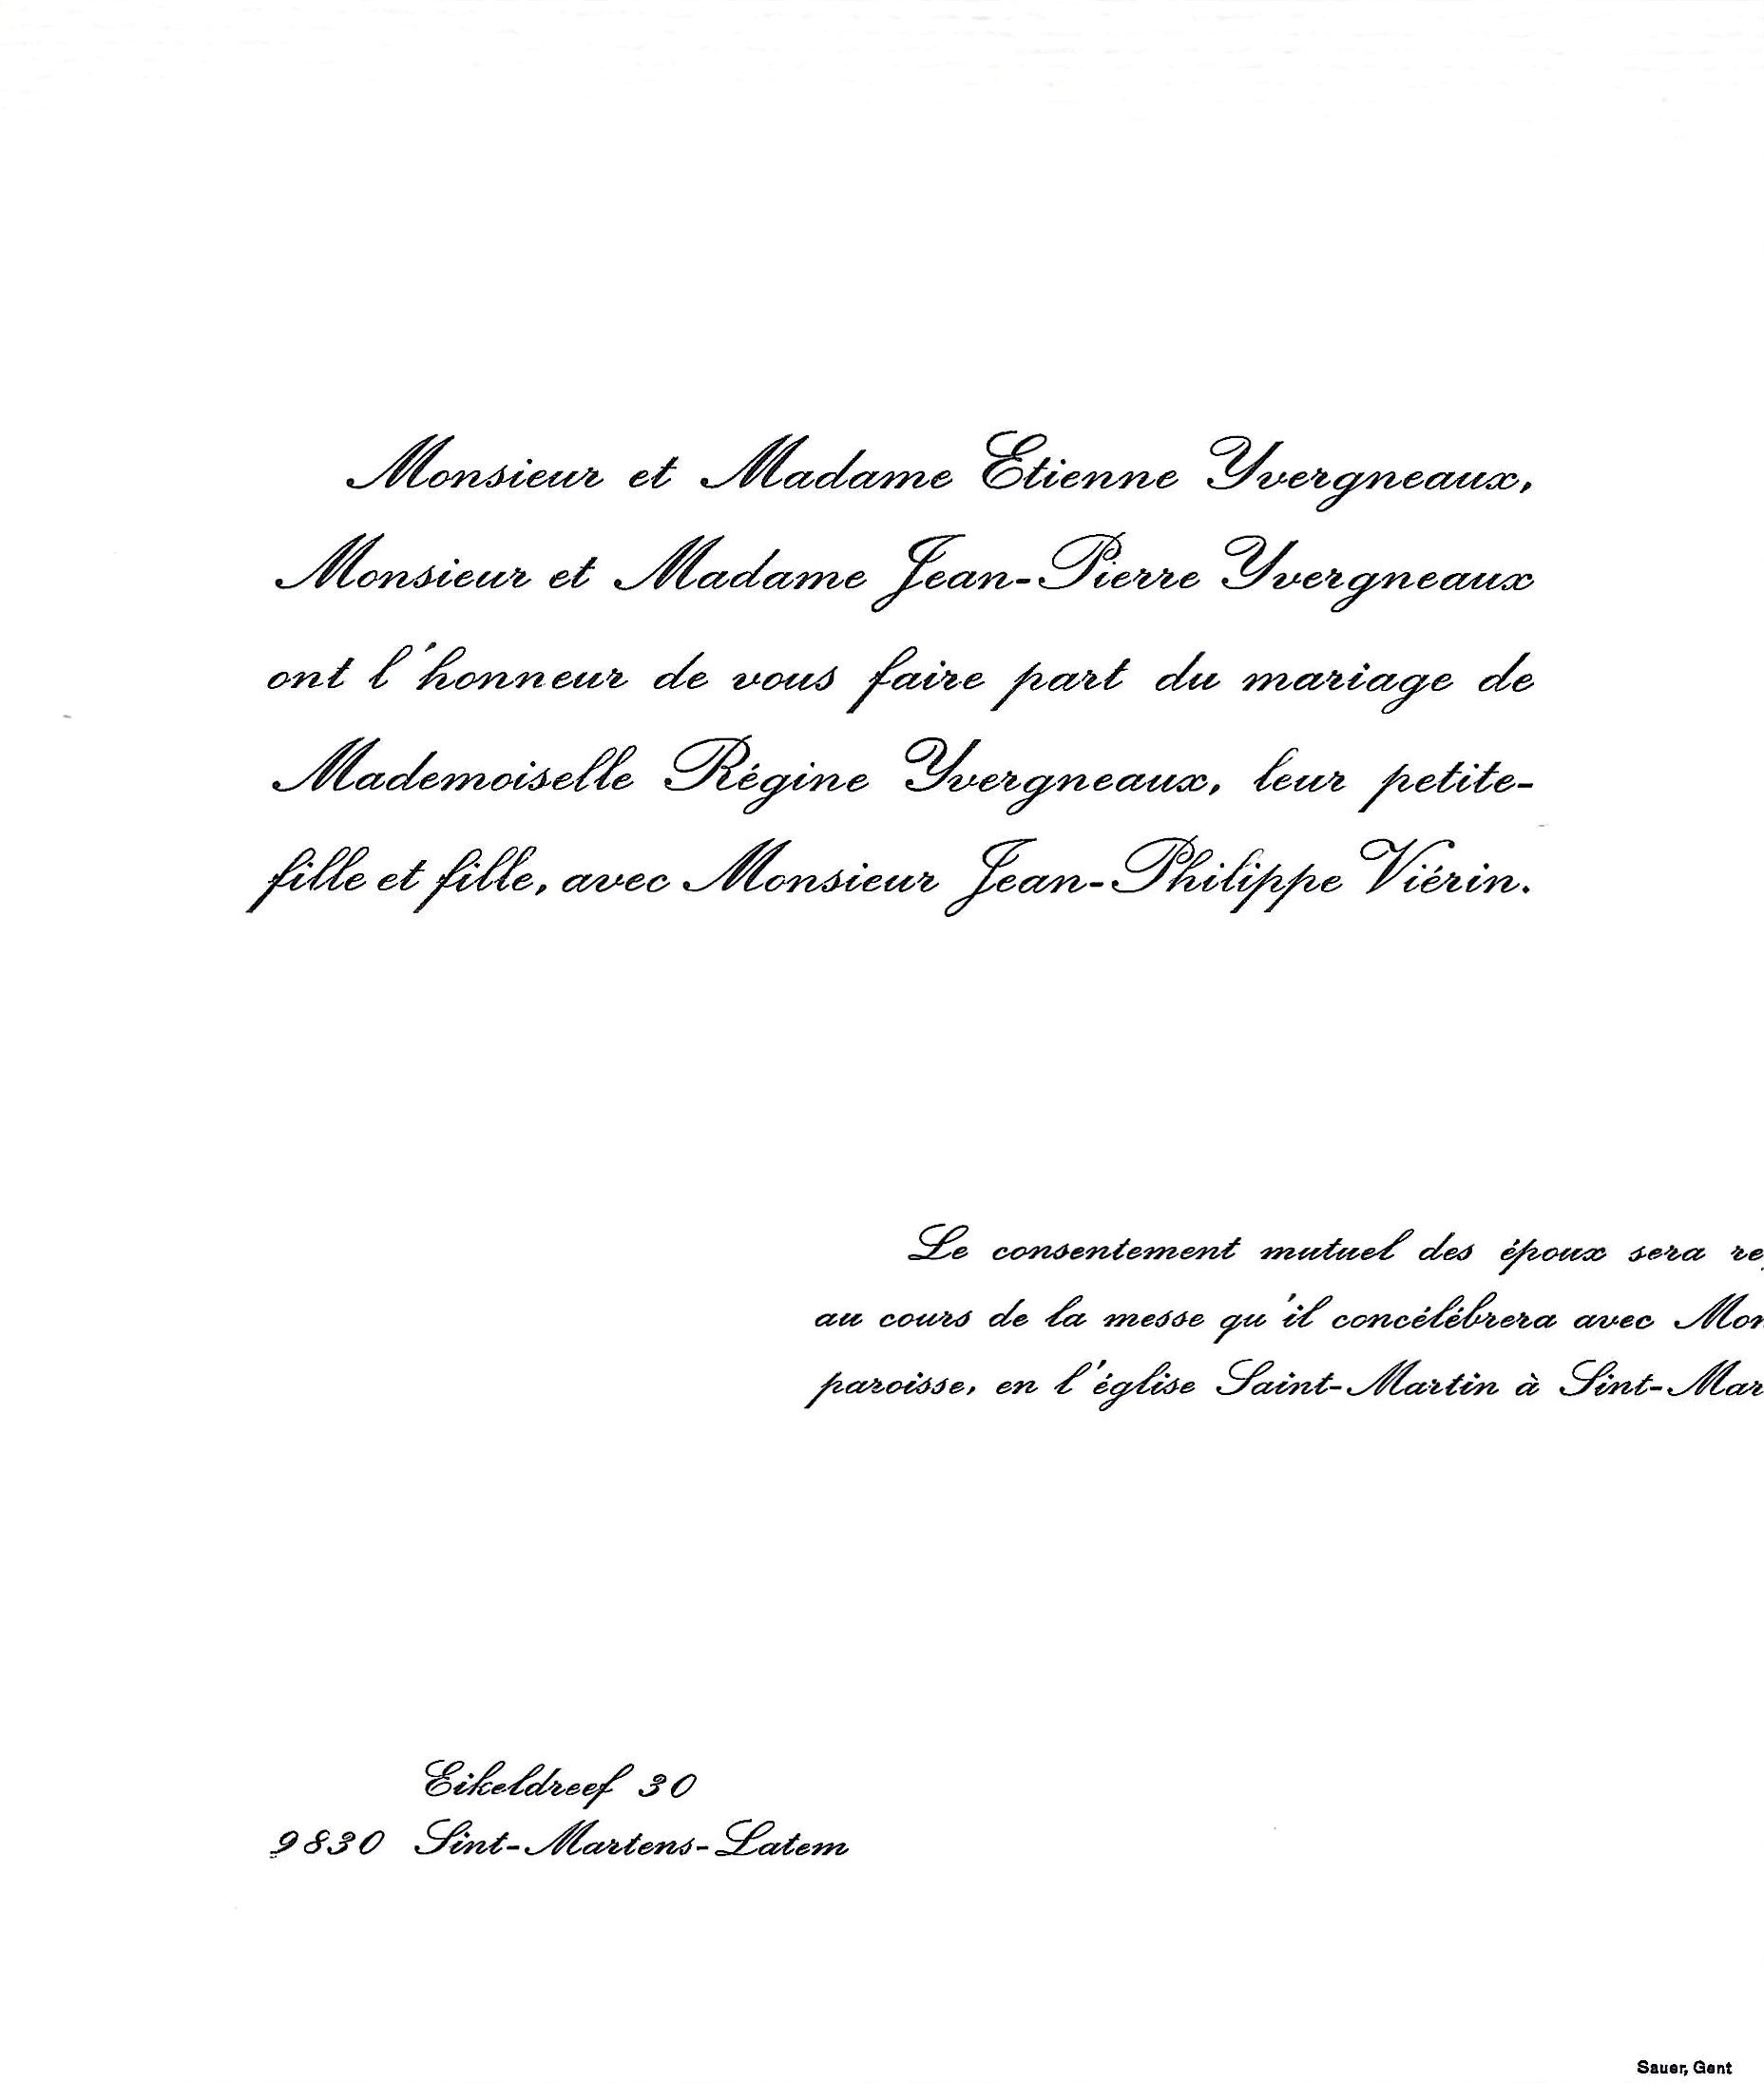 Monsieur et Madame Etienne Yvergneaux,
Monsieur et Madame Jean-Pierre Yvergneaux
ont l'honneur de vous faire part du mariage de
Mademoiselle Régine Yvergneaux, leur petite-
fille et fille, avec Monsieur Jean-Philippe Viérin.
Le consentement mutuel des époux sera
au cours de la messe qu'il concélébrera avec
paroisse, en l'église Saint-Martin à
Eikeldreef 30
9830 Sint-Martens-Latem
Sauer, Gent